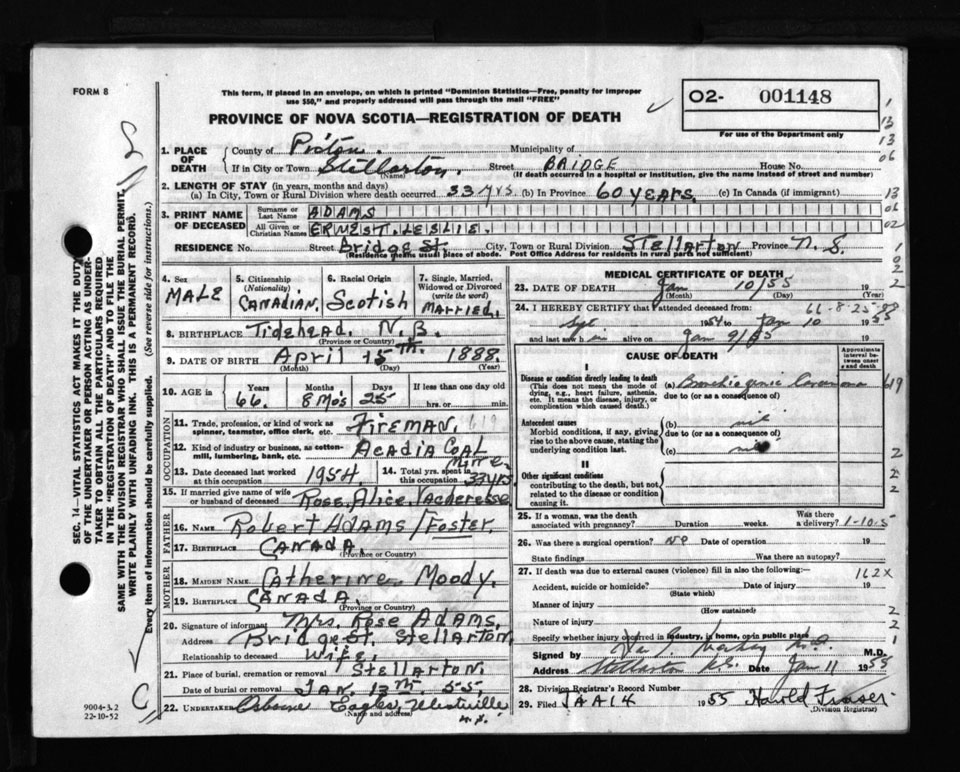 FORM 8
This form, if placed in an envelope, on which is printed "Dominion Statistics—Free, penalty for improper
use $50," and properly addressed will pass through the mail "FREE"
O2- 001148
For use of the Department only
PROVINCE OF NOVA SCOTIA—REGISTRATION OF DEATH
1. PLACE OF DEATH
County of Pictou. Municipality of
If in City or Town Stellarton. Street BRIDGE House No.
(Name) (If death occurred in a hospital or institution, give the name instead of street and number)
2. LENGTH OF STAY (in years, months and days)
(a) In City, Town or Rural Division where death occurred 33 yrs (b) In Province 60 years. (c) In Canada (if immigrant)
3. PRINT NAME OF DECEASED
Surname or Last Name ADAMS
All Given or Christian Names ERNEST. LESLIE.
RESIDENCE No. Street Bridge St. City, Town or Rural Division Stellarton Province N.S.
(Residence means usual place of abode. Post Office Address for residents in rural parts not sufficient)
4. Sex MALE
5. Citizenship (Nationality) CANADIAN.
6. Racial Origin Scotish
7. Single, Married, Widowed or Divorced (write the word) MARRIED.
8. BIRTHPLACE Tidehead. N.B.
(Province or Country)
9. DATE OF BIRTH April 15th. 1888
(Month) (Day) (Year)
10. AGE is
Years 66. Months 8 Mos Days 25 If less than one day old
hrs. or min.
OCCUPATION
11. Trade, profession, or kind of work as spinner, teamster, office clerk, etc. Fireman. 619
12. Kind of industry or business, as cotton-mill, lumbering, bank, etc. Acadia Coal Mine
13. Date deceased last worked at this occupation 1954.
14. Total yrs. spent in this occupation 33 yrs.
15. If married give name of wife or husband of deceased Rose. Alice. Vacheresse
FATHER
16. NAME Robert Adams / Foster
17. BIRTHPLACE CANADA.
(Province or Country)
MOTHER
18. MAIDEN NAME Catherine Moody.
19. BIRTHPLACE CANADA.
(Province or Country)
20. Signature of informant Mrs. Rose Adams.
Address Bridge St. Stellarton
Relationship to deceased Wife.
21. Place of burial, cremation or removal Stellarton.
Date of burial or removal JAN. 13th. 55.
22. UNDERTAKER Osborne Eagles, Westville
(Name and address) N.S.
MEDICAL CERTIFICATE OF DEATH
23. DATE OF DEATH Jan 10/55 19
(Month) (Day) (Year)
24. I HEREBY CERTIFY that I attended deceased from: 66-8-25
Sept 1954 to Jan 10 19
and last saw h im alive on Jan 9/55 19
CAUSE OF DEATH
Approximate interval between onset and death
I
Disease or condition directly leading to death (a) Bronchiogenic Carcinoma 619
(This does not mean the mode of dying, e.g., heart failure, asthenia, etc. It means the disease, injury, or complication which caused death.)
due to (or as a consequence of)
Antecedent causes (b) nil
Morbid conditions, if any, giving rise to the above cause, stating the underlying condition last.
due to (or as a consequence of)
(c) nil
II
Other significant conditions
contributing to the death, but not related to the disease or condition causing it.
25. If a woman, was the death associated with pregnancy? Duration weeks. Was there a delivery? 1-10-5
26. Was there a surgical operation? No Date of operation 19
State findings Was there an autopsy?
27. If death was due to external causes (violence) fill in also the following: 162X
Accident, suicide or homicide? Date of injury 19
(State which)
Manner of injury
(How sustained)
Nature of injury
Specify whether injury occurred in industry, in home, or in public place
Signed by M.D.
Address Stellarton N.S. Date Jan 11 1955
28. Division Registrar's Record Number
29. Filed JAN 14 1955 Harold Fraser
(Division Registrar)
SEC. 14—VITAL STATISTICS ACT MAKES IT THE DUTY
OF THE UNDERTAKER OR PERSON ACTING AS UNDER-
TAKER TO OBTAIN ALL THE PARTICULARS REQUIRED
IN THE "REGISTRATION OF DEATH" AND TO FILE THE
SAME WITH THE DIVISION REGISTRAR WHO SHALL ISSUE THE BURIAL PERMIT.
WRITE PLAINLY WITH UNFADING INK. THIS IS A PERMANENT RECORD.
Every item of information should be carefully supplied. (See reverse side for instructions.)
9004-3.2
22-10-52